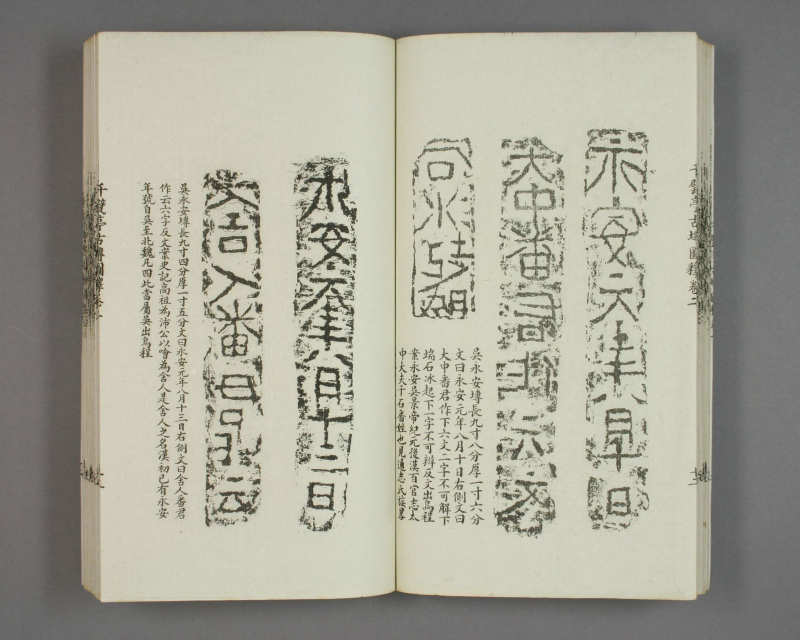 永安元年八月十日
大中番君作六文
石冰起
吳永安塼長九寸八分厚一寸六分
文曰永安元年八月十日右側文曰
大中番君作下六文二字不可解下
端石冰起下一字不可辨反文出烏程
案永安吳景帝紀元後漢百官志太
中大夫千石番姓也見通志氏族畧
千甓亭古塼圖釋卷二
永安元年八月十三日
舍人番君作云
吳永安塼長九寸四分厚一寸五分文曰永安元年八月十三日右側文曰舍人番君
作云六字反文案史記高祖為沛公以噲為舍人是舍人之名漢初已有永安
年號自吳至北魏凡四此當屬吳出烏程
千甓亭古塼圖釋卷二